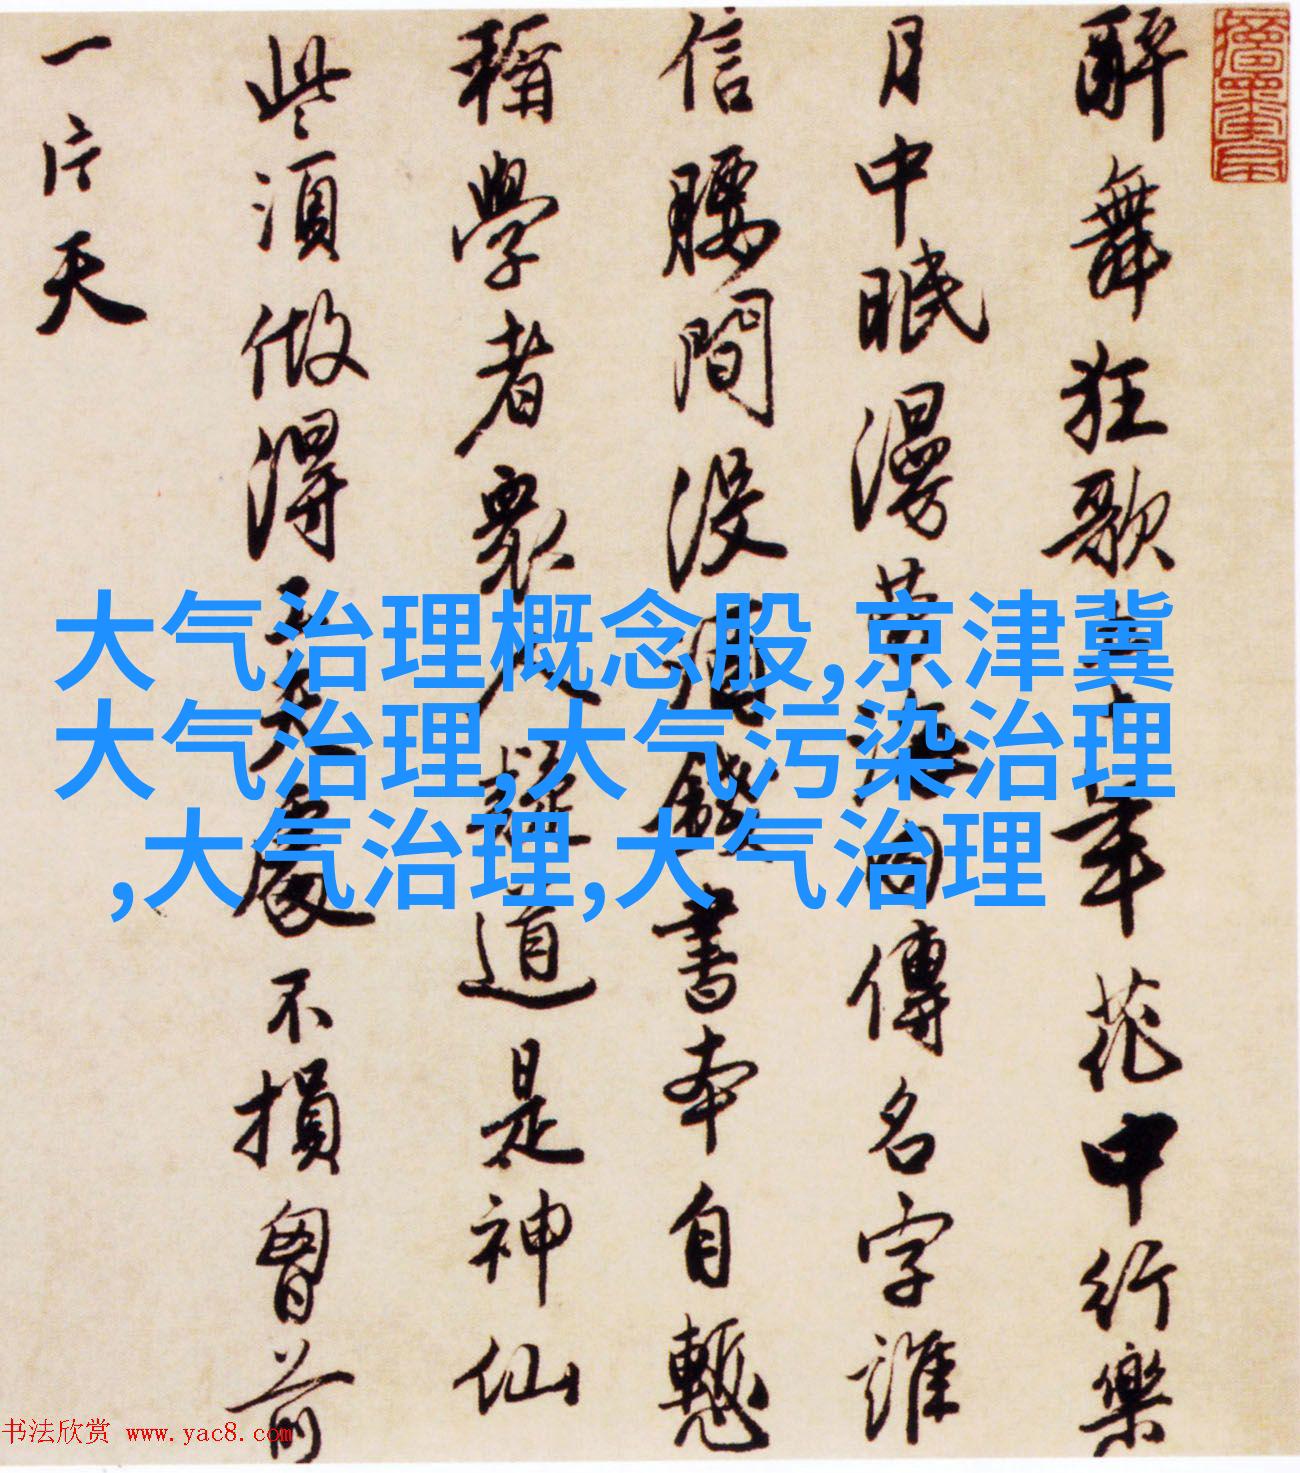 醉舞狂歌五十年花中行樂
月中眠漫勞海内傳名字誰
信腰間沒酒錢書本自慙
稱學者衆人疑道是神仙
些須做得工夫處不損胷前
一片天
大气治理概念股,京津冀
大气治理,大气污染治理
,大气治理,大气治理
书法欣赏 www.yac8.com